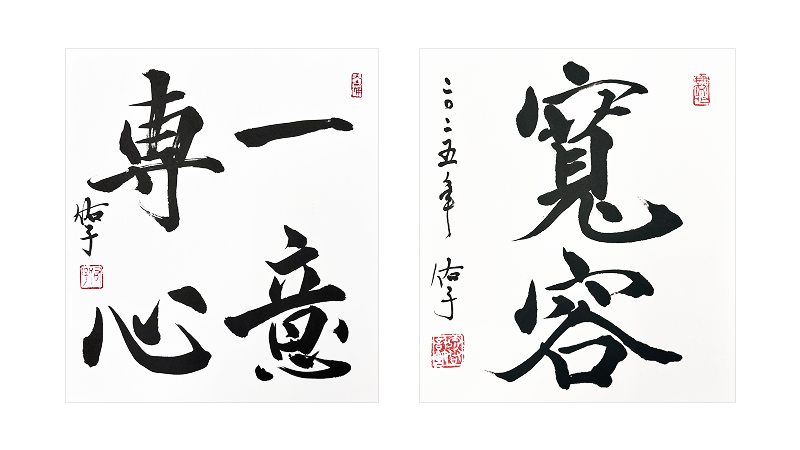 一意
専心
佑子
寛容
二〇二五年 佑子